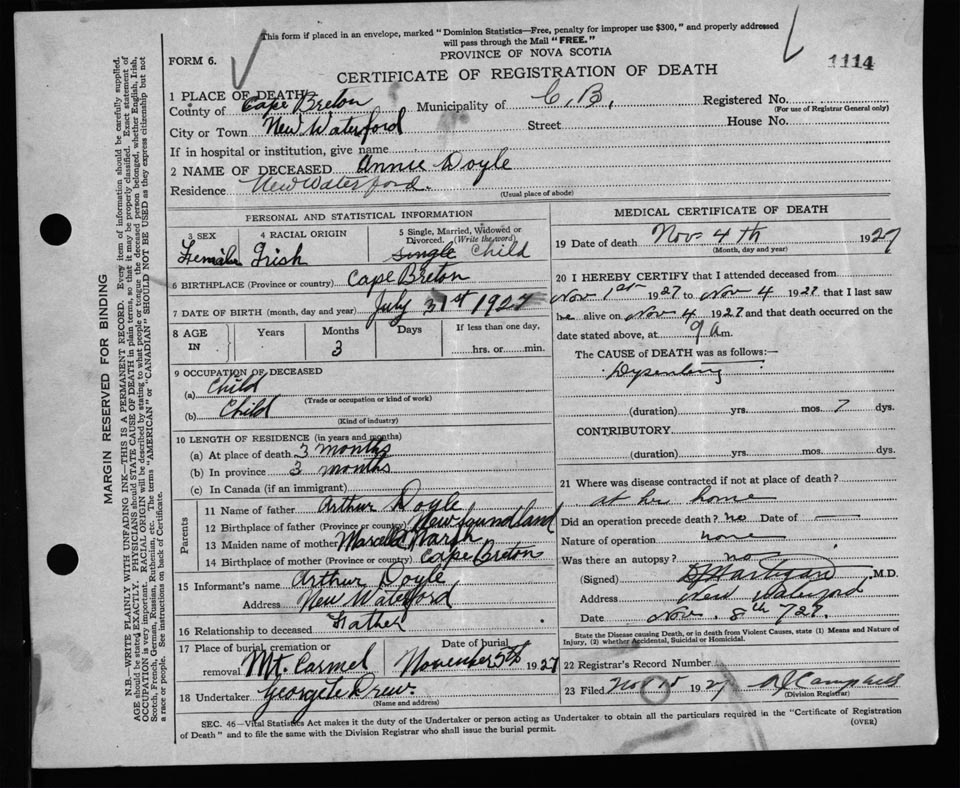 This form if placed in an envelope, marked "Dominion Statistics—Free, penalty for improper use $300," and properly addressed
will pass through the Mail "FREE."
FORM 6.
PROVINCE OF NOVA SCOTIA
1114
CERTIFICATE OF REGISTRATION OF DEATH
1 PLACE OF DEATH
County of Cape Breton Municipality of C, B, Registered No.
(For use of Registrar General only)
City or Town New Waterford Street House No.
If in hospital or institution, give name
2 NAME OF DECEASED Annie Doyle
Residence New Waterford.
(Usual place of abode)
PERSONAL AND STATISTICAL INFORMATION
3 SEX 4 RACIAL ORIGIN 5 Single, Married, Widowed or
Divorced. (Write the word)
Female Irish single Child
6 BIRTHPLACE (Province or country) Cape Breton
7 DATE OF BIRTH (month, day and year) July 31st 1927
8 AGE IN Years Months Days If less than one day,
3 hrs. or min.
9 OCCUPATION OF DECEASED
(a) Child
(Trade or occupation or kind of work)
(b) Child
(Kind of industry)
10 LENGTH OF RESIDENCE (in years and months)
(a) At place of death 3 months
(b) In province 3 months
(c) In Canada (if an immigrant)
Parents
11 Name of father Arthur Doyle
12 Birthplace of father (Province or country) Newfoundland
13 Maiden name of mother Marcella
14 Birthplace of mother (Province or country) Cape Breton
15 Informant's name Arthur Doyle
Address New Waterford
16 Relationship to deceased Father
17 Place of burial, cremation or Date of burial
removal Mt. Carmel November 5th 1927
18 Undertaker George
(Name and address)
MEDICAL CERTIFICATE OF DEATH
19 Date of death Nov 4th 1927
(Month, day and year)
20 I HEREBY CERTIFY that I attended deceased from
Nov 1st 1927 to Nov 4 1927 that I last saw
alive on Nov 4 1927 and that death occurred on the
date stated above, at 9 a m.
The CAUSE of DEATH was as follows:—
Dysentery
(duration) yrs. mos. 7 dys.
CONTRIBUTORY.
(duration) yrs. mos. dys.
21 Where was disease contracted if not at place of death?
at her home
Did an operation precede death? no Date of —
Nature of operation none
Was there an autopsy? no
(Signed) M.D.
Address New Waterford
Date Nov. 8th /27.
State the Disease causing Death, or in death from Violent Causes, state (1) Means and Nature of
Injury, (2) whether Accidental, Suicidal or Homicidal.
22 Registrar's Record Number
23 Filed 1927 Campbell
(Division Registrar)
SEC. 46—Vital Statistics Act makes it the duty of the Undertaker or person acting as Undertaker to obtain all the particulars required in the "Certificate of Registration
of Death" and to file the same with the Division Registrar who shall issue the burial permit.
(OVER)
MARGIN RESERVED FOR BINDING
N.B.—WRITE PLAINLY WITH UNFADING INK—THIS IS A PERMANENT RECORD. Every item of information should be carefully supplied.
AGE should be stated EXACTLY. PHYSICIANS should STATE CAUSE OF DEATH in plain terms, so that it may be properly classified. Exact statement of
OCCUPATION is very important. RACIAL ORIGIN will be described by stating to what people or tongue the deceased person belonged, whether English, Irish,
Scotch, French, German, Russian, Ruthenian, etc. The terms "AMERICAN" or "CANADIAN" SHOULD NOT BE USED as they express citizenship but not
a race or people. See instructions on back of Certificate.